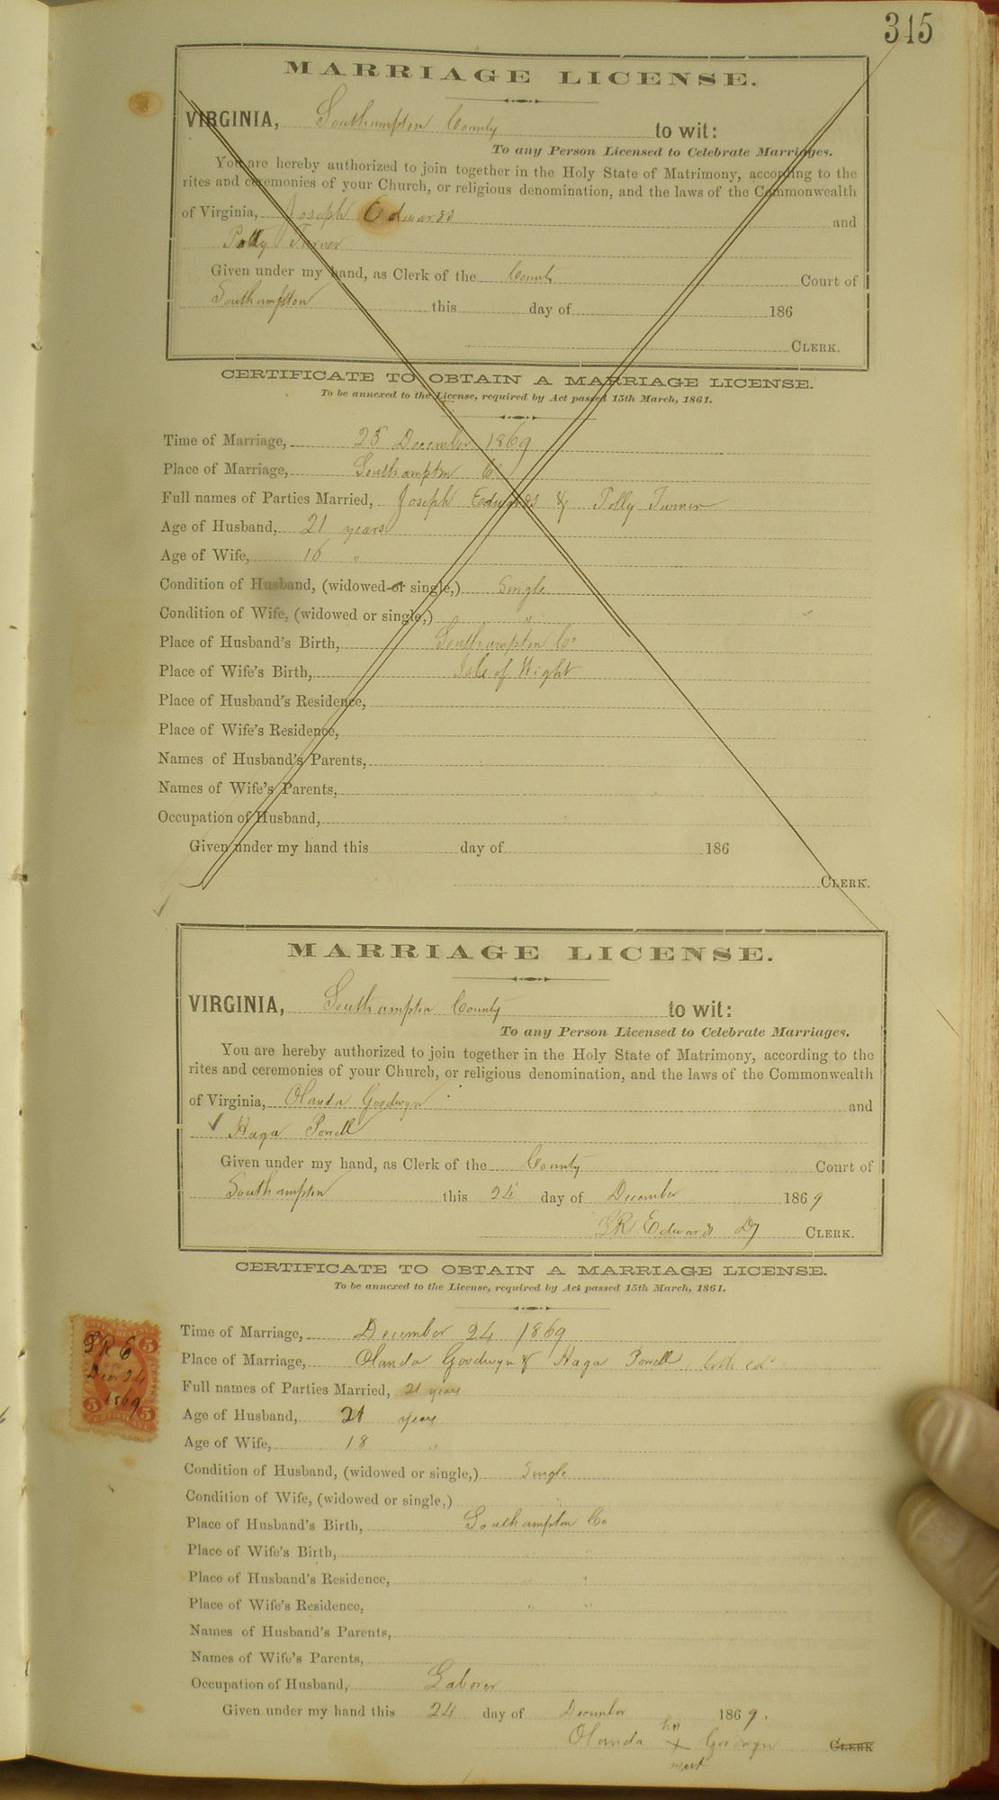 315
MARRIAGE LICENSE.
VIRGINIA, Southampton County to wit:
To any Person Licensed to Celebrate Marriages.
You are hereby authorized to join together in the Holy State of Matrimony, according to the
rites and ceremonies of your Church, or religious denomination, and the laws of the Commonwealth
of Virginia, Joseph Edwards and
Polly Turner
Given under my hand, as Clerk of the County Court of
Southampton this day of 186
CLERK.
CERTIFICATE TO OBTAIN A MARRIAGE LICENSE.
To be annexed to the License, required by Act passed 15th March, 1861.
Time of Marriage, 25 December 1869
Place of Marriage, Southampton Co
Full names of Parties Married, Joseph Edwards & Polly Turner
Age of Husband, 21 years
Age of Wife, 16 "
Condition of Husband, (widowed or single,) Single
Condition of Wife, (widowed or single,) "
Place of Husband's Birth, Southampton Co
Place of Wife's Birth, Isle of Wight
Place of Husband's Residence,
Place of Wife's Residence,
Names of Husband's Parents,
Names of Wife's Parents,
Occupation of Husband,
Given under my hand this day of 186
CLERK.
MARRIAGE LICENSE.
VIRGINIA, Southampton County to wit:
To any Person Licensed to Celebrate Marriages.
You are hereby authorized to join together in the Holy State of Matrimony, according to the
rites and ceremonies of your Church, or religious denomination, and the laws of the Commonwealth
of Virginia, Olanda Goodwyn and
Haga Powell
Given under my hand, as Clerk of the County Court of
Southampton this 24 day of December 1869
LR Edwards Dy CLERK.
CERTIFICATE TO OBTAIN A MARRIAGE LICENSE.
To be annexed to the License, required by Act passed 15th March, 1861.
Time of Marriage, December 24 1869
Place of Marriage, Olanda Goodwyn & Haga Powell, both cold
Full names of Parties Married, 21 years
Age of Husband, 21 years
Age of Wife, 18 "
Condition of Husband, (widowed or single,) Single
Condition of Wife, (widowed or single,) "
Place of Husband's Birth, Southampton Co
Place of Wife's Birth, " "
Place of Husband's Residence, " "
Place of Wife's Residence, " "
Names of Husband's Parents,
Names of Wife's Parents,
Occupation of Husband, Laborer
Given under my hand this 24 day of December 1869.
his
Olanda X Goodwyn CLERK
mark
LRE
Dec 24
1869
5
5 5